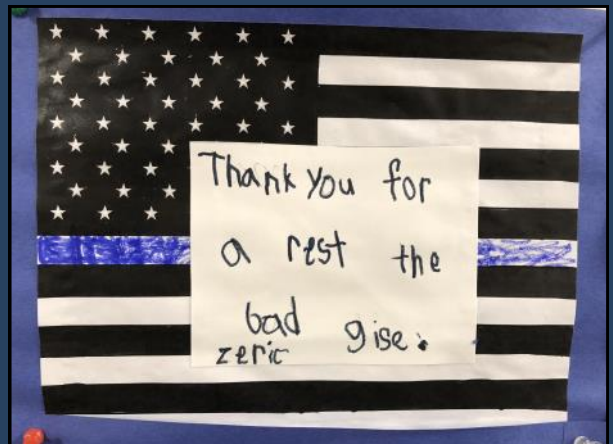 Thank you for
a rest the
bad gise.
zeric